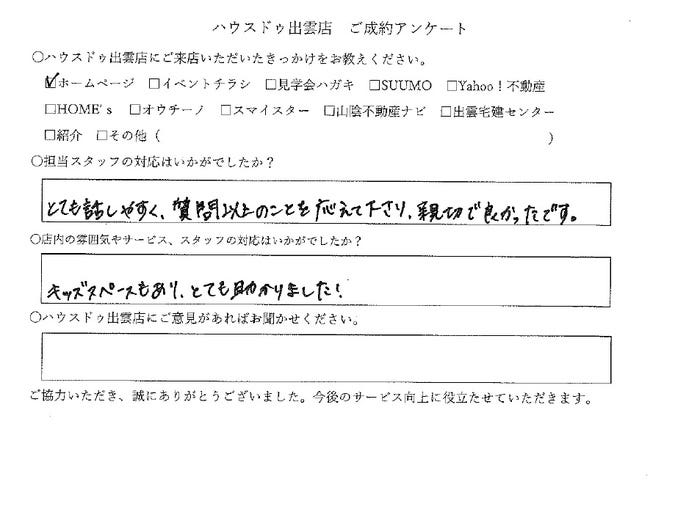 ハウスドゥ出雲店　ご成約アンケート
○ハウスドゥ出雲店にご来店いただいたきっかけをお教えください。
☑ホームページ　□イベントチラシ　□見学会ハガキ　□SUUMO　□Yahoo！不動産
□HOME's　□オウチーノ　□スマイスター　□山陰不動産ナビ　□出雲宅建センター
□紹介　□その他（　　　　　　　　　　）
○担当スタッフの対応はいかがでしたか？
とても話しやすく、質問以上のことを応えて下さり、親切で良かったです。
○店内の雰囲気やサービス、スタッフの対応はいかがでしたか？
キッズスペースもあり、とても助かりました！
○ハウスドゥ出雲店にご意見があればお聞かせください。
ご協力いただき、誠にありがとうございました。今後のサービス向上に役立たせていただきます。